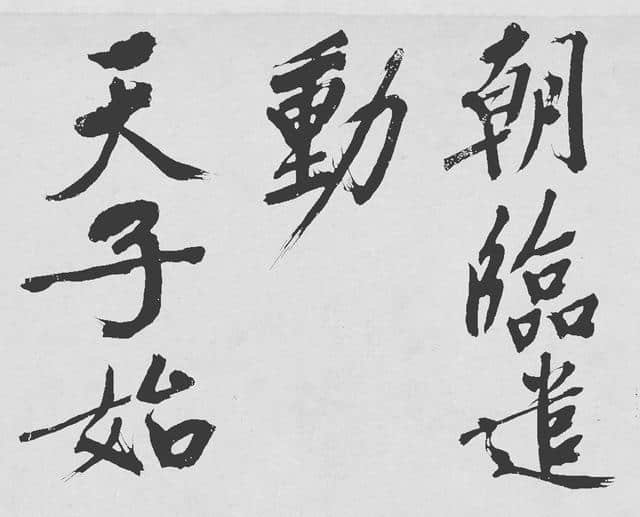 朝臨遣
動
天子始